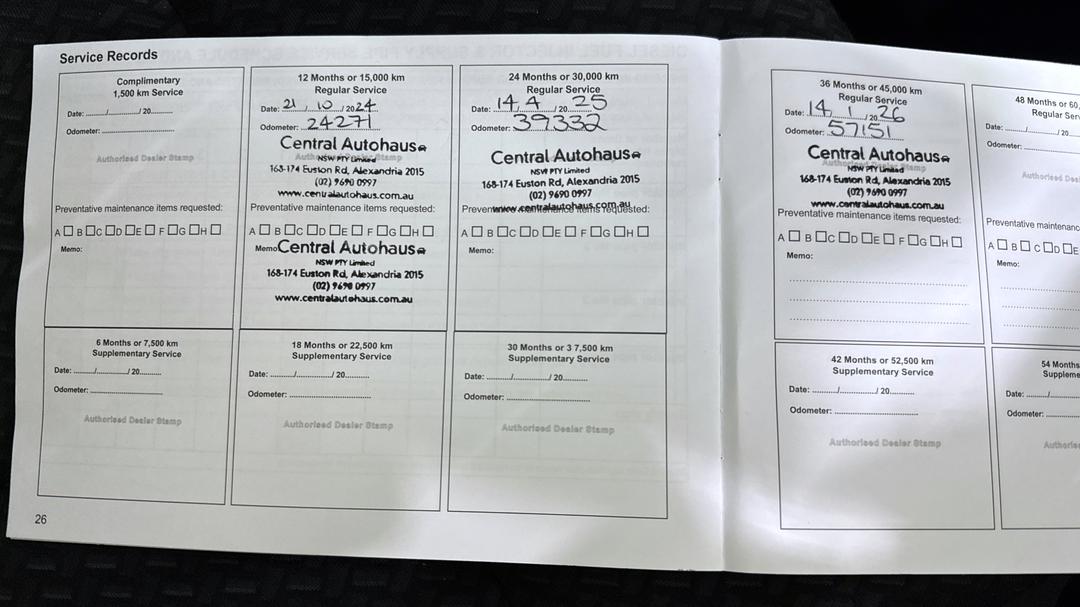 Service Records
Complimentary
1,500 km Service
Date: ....../....../ 20......
Odometer: ......
Authorised Dealer Stamp
Preventative maintenance items requested:
A □ B □ C □ D □ E □ F □ G □ H □
Memo:
12 Months or 15,000 km
Regular Service
Date: 21 / 10 / 2024
Odometer: 24271
Authorised Dealer Stamp
Central Autohaus
NSW PTY Limited
168-174 Euston Rd, Alexandria 2015
(02) 9690 0997
www.centralautohaus.com.au
Preventative maintenance items requested:
A □ B □ C □ D □ E □ F □ G □ H □
Memo: Central Autohaus
NSW PTY Limited
168-174 Euston Rd, Alexandria 2015
(02) 9690 0997
www.centralautohaus.com.au
24 Months or 30,000 km
Regular Service
Date: 14 / 4 / 20 25
Odometer: 39332
Central Autohaus
NSW PTY Limited
168-174 Euston Rd, Alexandria 2015
(02) 9690 0997
www.centralautohaus.com.au
Preventative maintenance items requested:
A □ B □ C □ D □ E □ F □ G □ H □
Memo:
6 Months or 7,500 km
Supplementary Service
Date: ....../....../ 20......
Odometer: ......
Authorised Dealer Stamp
18 Months or 22,500 km
Supplementary Service
Date: ....../....../ 20......
Odometer: ......
Authorised Dealer Stamp
30 Months or 3 7,500 km
Supplementary Service
Date: ....../....../ 20......
Odometer: ......
Authorised Dealer Stamp
26
36 Months or 45,000 km
Regular Service
Date: 14 / 1 / 20 26
Odometer: 57151
Authorised Dealer Stamp
Central Autohaus
NSW PTY Limited
168-174 Euston Rd, Alexandria 2015
(02) 9690 0997
www.centralautohaus.com.au
Preventative maintenance items requested:
A □ B □ C □ D □ E □ F □ G □ H □
Memo:
48 Months or 60,
Regular Ser
Date: ....../....../ 20
Odometer: ......
Authorised Deal
Preventative maintenanc
A □ B □ C □ D □ E
Memo:
42 Months or 52,500 km
Supplementary Service
Date: ....../....../ 20......
Odometer: ......
Authorised Dealer Stamp
54 Months
Suppleme
Date: ....../
Odometer: ......
Authorise